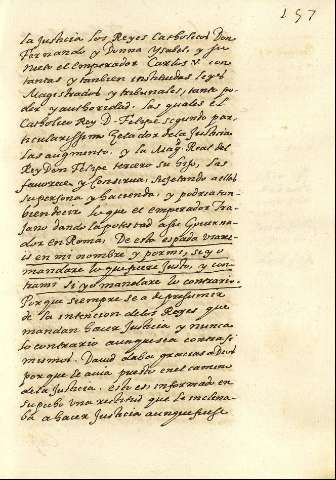 157
la Justicia los Reyes Catholicos Don
Fernando y Donna Ysabel, y su
nieto el emperador Carlos V con
tantas y tambien instituidas leyes
Magistrados y tribunales, tanto po
der y authoridad. las quales el
Catholico Rey D. Felipe segundo par
ticularissimo Zelador de la Justicia
las augmento, y la Mag. Real del
Rey Don Felipe tercero su hijo, las
favorece y Conserva, sujetando a ellas
su persona y hacienda, y podria tan
bien decir lo que el emperador Tra
jano dando la potestad a su Governa
dor en Roma, De esta espada usare
is en mi nombre y por mi, si yo
mandare lo que fuere Justo, y con
tra mi si yo mandare lo contrario.
Porque siempre se a de presumir
de la intencion de los Reyes que
mandan hacer Justicia y nunca
lo contrario aunque sea contra si
mismos. David daba gracias a Dios
porque le avia puesto en el camino
de la Justicia, esto es informado en
su pecho una rectitud que le inclina
ba a hacer Justicia aunque fuese